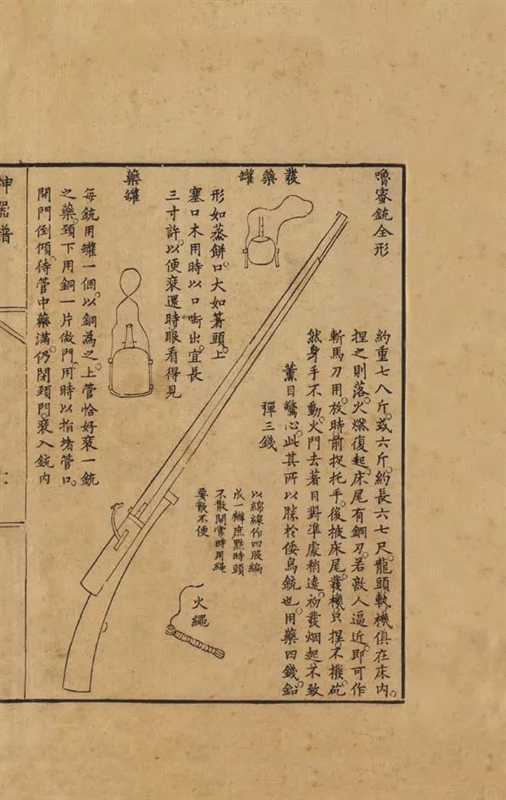 嚕密銃全形
約重七八斤。或六斤。約長六七尺。龍頭軌機俱在床内。
捏之則落。火燃復起。床尾有鋼刃。若敵人逼近。即可作
斬馬刀用。放時前捉托手。後掖床尾。發機只捏不撥。砣
然身手不動。火門去著目對準處稍遠。初發烟起不致
薰目驚心。此其所以勝於倭鳥銃也。用藥四錢。鉛
彈三錢
發藥罐
形如蒸餅。口大如箸頭。上
塞口木用時以口啣出。宜長
三寸許。以便裝還時眼看得見
以綿線作四股編
成一辮庶點時頭
不散閒常時用繩
要散不便
火繩
藥罐
每銃用罐一個。以銅為之。上管恰好裝一銃
之藥。頸下用銅一片做門。用時以指堵管口。
開門倒傾。待管中藥滿。仍閉頸門。裝入銃内
神器譜